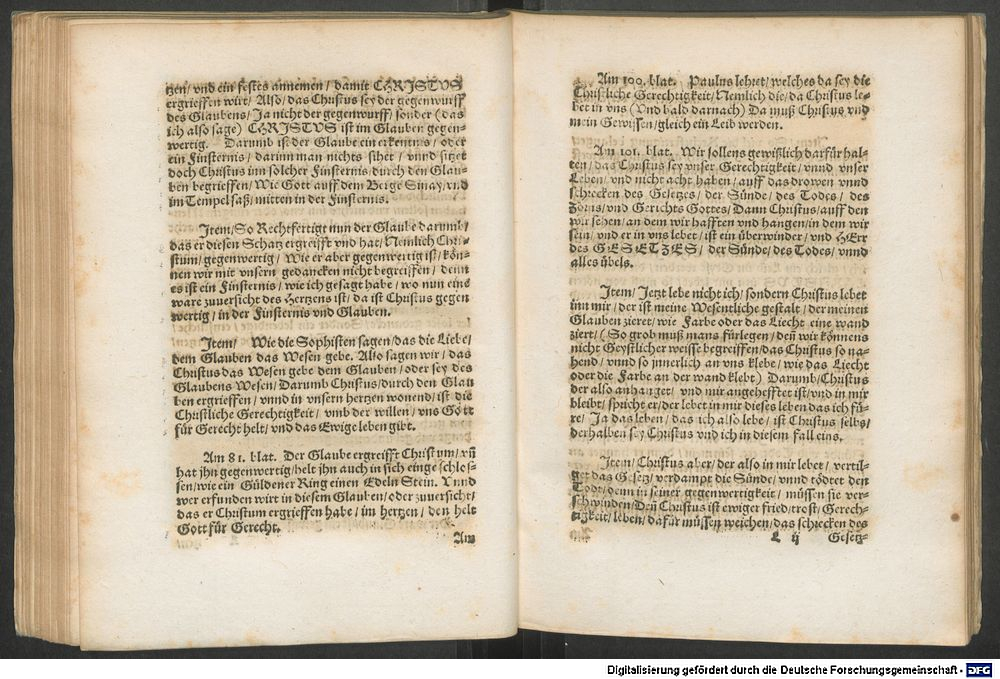 tzen/ vnd ein festes annemen/ damit CHRISTVS
ergrieffen wirt/ Also/ das Christus sey der gegenwurff
des Glaubens/ Ja nicht der gegenwurff/ sonder (das
ich also sage) CHRISTVS ist im Glauben gegen-
wertig. Darumb ist der Glaube ein erkentnis/ oder
ein Finsternis/ darinn man nichts sihet/ vnnd sitzet
doch Christus inn solcher Finsternis/ durch den Glau-
ben begrieffen/ Wie Gott auff dem Berge Sinay/ vnd
im Tempel saß/ mitten in der Finsternis.
Item/ So Rechtfertigt nun der Glaube darumb/
das er diesen Schatz ergreifft vnd hat/ Nemlich Chri-
stum/ gegenwertig/ Wie er aber gegenwertig ist/ kön-
nen wir mit vnsern gedancken nicht begreiffen/ denn
es ist ein Finsternis/ wie ich gesagt habe/ wo nun eine
ware zuuersicht des Hertzens ist/ da ist Christus gegen
wertig/ in der Finsternis vnd Glauben.
Item/ Wie die Sophisten sagen/ das die Liebe/
dem Glauben das Wesen gebe. Also sagen wir/ das
Christus das Wesen gebe dem Glauben/ oder sey des
Glaubens Wesen/ Darumb Christus/ durch den Glau
ben ergrieffen/ vnnd in vnsern hertzen wonend/ ist die
Christliche Gerechtigkeit/ vmb der willen/ vns Gott
für Gerecht helt/ vnd das Ewige leben gibt.
Am 81. blat. Der Glaube ergreifft Christum/ vñ
hat jhn gegenwertig/ helt jhn auch in sich eingeschlos-
sen/ wie ein Güldener Ring einen Edeln Stein. Vnnd
wer erfunden wirt in diesem Glauben/ oder zuuersicht/
das er Christum ergrieffen habe/ im hertzen/ den helt
Gott für Gerecht.
Am
Am 100. blat. Paulus lehret/ welches da sey die
Christliche Gerechtigkeit/ Nemlich die/ da Christus le-
bet in vns (Vnd bald darnach) Da muß Christus vnd
mein Gewissen/ gleich ein Leib werden.
Am 101. blat. Wir sollens gewißlich darfür hal-
ten/ das Christus sey vnser Gerechtigkeit/ vnnd vnser
Leben/ vnd nicht acht haben/ auff das drowen vnnd
schrecken des Gesetzes/ der Sünde/ des Todes/ des
Zorns/ vnd Gerichts Gottes/ Dann Christus/ auff den
wir sehen/ an dem wir hafften vnd hangen/ in dem wir
sein/ vnd er in vns lebet/ ist ein überwinder/ vnd HErr
des GESETZES/ der Sünde/ des Todes/ vnnd
alles übels.
Item/ Jetzt lebe nicht ich/ sondern Christus lebet
inn mir/ der ist meine Wesentliche gestalt/ der meinen
Glauben zieret/ wie Farbe oder das Liecht eine wand
ziert/ (So grob muß mans fürlegen/ deñ wir könnens
nicht Geystlicher weisse begreiffen/ das Christus so na-
hend/ vnnd so jnnerlich an vns klebe/ wie das Liecht
oder die Farbe an der wand klebt) Darumb/ Christus
der also anhanget/ vnd mir angehefftet ist/ vnd in mir
bleibt/ spricht er/ der lebet in mir dieses leben das ich fü-
re/ Ja das leben/ das ich also lebe/ ist Christus selbs/
derhalben sey Christus vnd ich in diesem fall eins.
Item/ Christus aber/ der also in mir lebet/ vertil-
get das Gesetz/ verdampt die Sünde/ vnnd tödtet den
Todt/ denn in seiner gegenwertigkeit/ müssen sie ver-
schwinden/ Deñ Christus ist ewiger fried/ trost/ Gerech-
tigkeit/ leben/ dafür müssen weichen/ das schrecken des
L ij Gesetz-
Digitalisierung gefördert durch die Deutsche Forschungsgemeinschaft - DFG